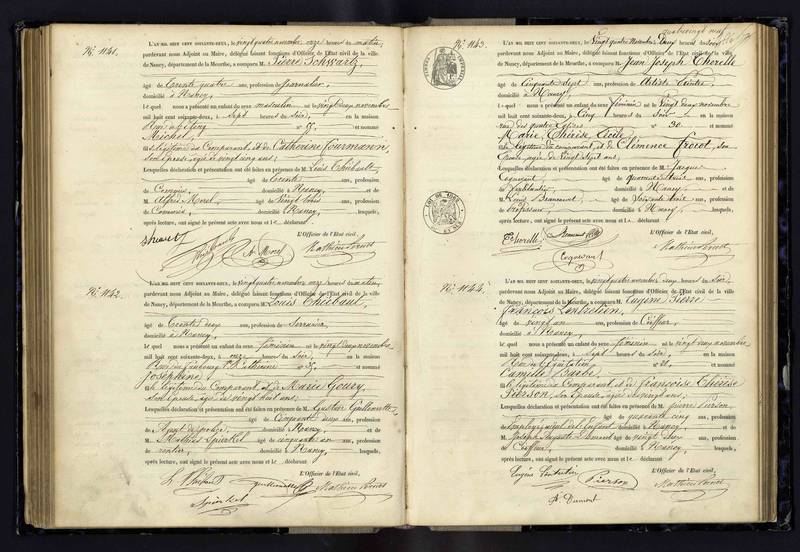 N.º 1141.
L'AN MIL HUIT CENT SOIXANTE-DEUX, le vingt quatre novembre onze heures du matin,
pardevant nous Adjoint au Maire, délégué faisant fonctions d'Officier de l'Etat civil de la ville
de Nancy, département de la Meurthe, a comparu M. Pierre Schwartz,
âgé de trente quatre ans, profession de Journalier,
domicilié à Nancy,
lequel nous a présenté un enfant du sexe masculin né le vingt deux novembre
mil huit cent soixante-deux, à sept heures du soir, en la maison
N.º 57, et nommé
Michel,
fils légitime du Comparant, et de Catherine Fourmann,
son épouse, âgée de vingt cinq ans;
Lesquelles déclaration et présentation ont été faites en présence de M. Louis Thiébault,
âgé de trente ans, profession
de Commis, domicilié à Nancy, et de
M. Alfred Morel âgé de vingt trois ans, profession
de Commis, domicilié à Nancy, lesquels,
après lecture, ont signé le présent acte avec nous et le déclarant
L'Officier de l'Etat civil,
A. Morel
N.º 1142.
L'AN MIL HUIT CENT SOIXANTE-DEUX, le vingt quatre novembre onze heures du matin,
pardevant nous Adjoint au Maire, délégué faisant fonctions d'Officier de l'Etat civil de la ville
de Nancy, département de la Meurthe, a comparu M. Louis Thiébaut,
âgé de trente deux ans, profession de Serrurier,
domicilié à Nancy,
lequel nous a présenté un enfant du sexe féminin né le vingt deux novembre
mil huit cent soixante-deux, à onze heures du soir, en la maison
Rue du faubourg St Catherine N.º 35, et nommé
Joséphine,
fille légitime du Comparant et de Marie Goury,
son épouse âgée de vingt huit ans;
Lesquelles déclaration et présentation ont été faites en présence de M. Gustave Guillemette
âgé de cinquante deux ans, profession
d'Agent de police, domicilié à Nancy, et de
M. Mathias Spierkel âgé de cinquante un ans, profession
de rentier, domicilié à Nancy, lesquels,
après lecture, ont signé le présent acte avec nous et le déclarant
L'Officier de l'Etat civil,
quatrevingt neuf
N.º 1143.
le vingt quatre novembre deux heures du soir
pardevant nous Adjoint au Maire, délégué faisant fonctions d'Officier de l'Etat civil de la ville
de Nancy, département de la Meurthe, a comparu M. Jean Joseph Therelle
âgé de cinquante sept ans, profession de Artiste Peintre
domicilié à Nancy,
lequel nous a présenté un enfant du sexe féminin né le vingt deux novembre
mil huit cent soixante-deux, à cinq heures du soir en la maison
rue des quatre Eglises N.º 30 et nommé
Marie Thérèse Cécile,
fille légitime du comparant, et de Clémence Froiot, son
épouse, âgée de vingt sept ans;
Lesquelles déclaration et présentation ont été faites en présence de M. Jacques
Coquevant âgé de quarante huit ans, profession
de ferblantier, domicilié à Nancy et de
M. Louis Beaucourt âgé de soixante huit ans, profession
de Professeur, domicilié à Nancy, lesquels,
après lecture, ont signé le présent acte avec nous et le déclarant
L'Officier de l'Etat civil,
Coquevant
N.º 1144.
L'AN MIL HUIT CENT SOIXANTE-DEUX, le vingt quatre novembre deux heures du soir,
pardevant nous Adjoint au Maire, délégué faisant fonctions d'Officier de l'Etat civil de la ville
de Nancy, département de la Meurthe, a comparu M. Eugène Pierre
François Centrelien,
âgé de vingt un ans, profession de Coiffeur,
domicilié à Nancy,
lequel nous a présenté un enfant du sexe féminin né le vingt deux novembre
mil huit cent soixante-deux, à sept heures du soir, en la maison
Rue de l'Equitation N.º 21, et nommé
Camille Barbe,
fille légitime du Comparant et de Françoise Thérèse
Pierson, son épouse âgée de vingt ans;
Lesquelles déclaration et présentation ont été faites en présence de M. Pierre Pierson,
âgé de quarante cinq ans, profession
domicilié à Nancy, et de
M. Joseph Auguste Dumont âgé de vingt deux ans, profession
de Coiffeur, domicilié à Nancy, lesquels,
après lecture, ont signé le présent acte avec nous et le déclarant
L'Officier de l'Etat civil,
Pierson
A. Dumont